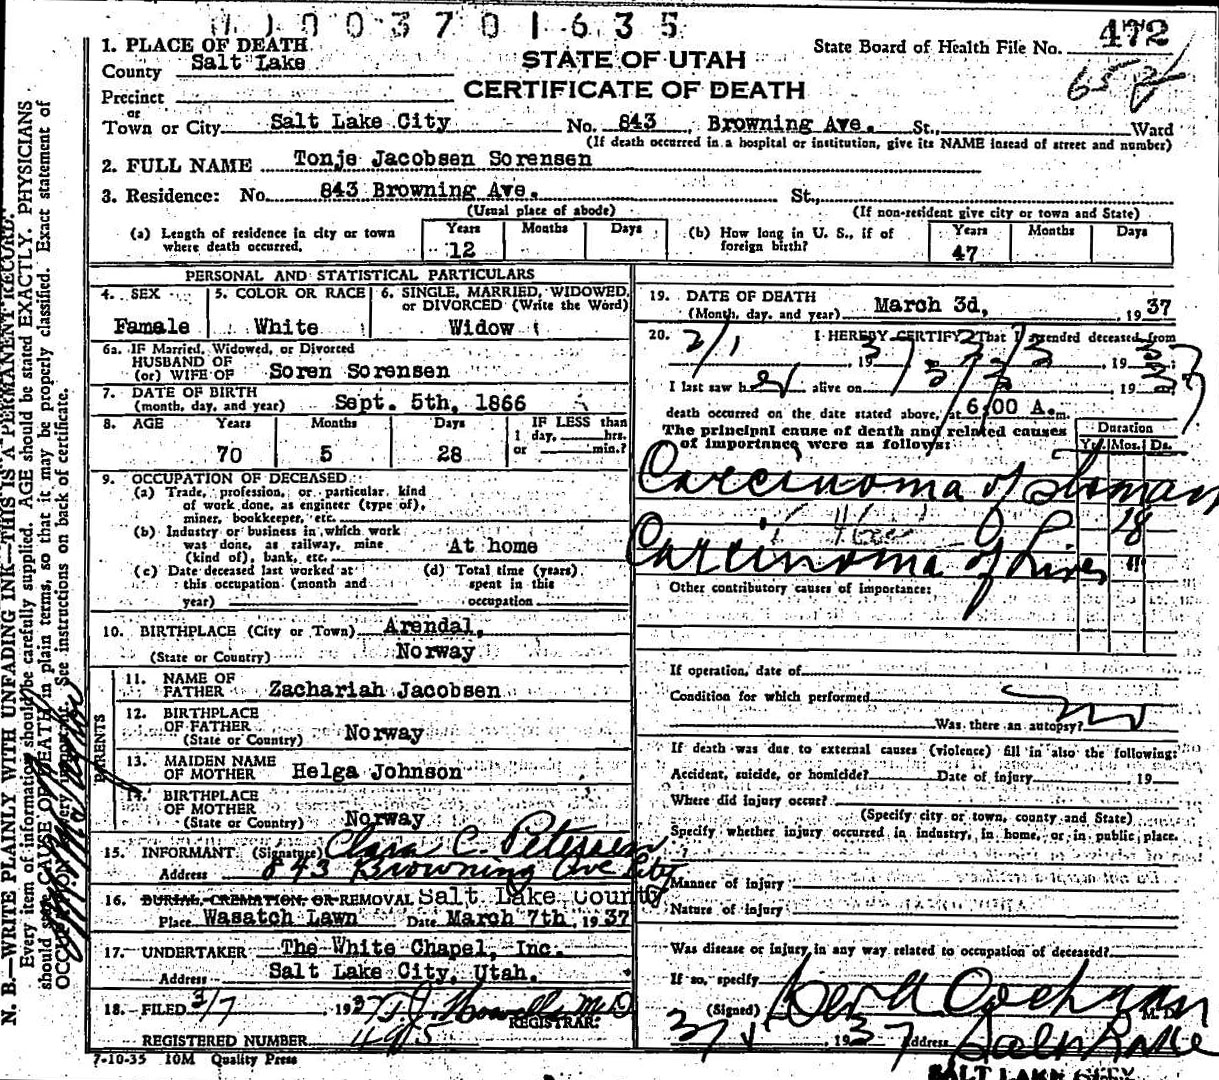 11003701635
1. PLACE OF DEATH
County Salt Lake
STATE OF UTAH
CERTIFICATE OF DEATH
State Board of Health File No. 472
65
Precinct
or
Town or City Salt Lake City No. 843 Browning Ave. St., Ward
(If death occurred in a hospital or institution, give its NAME insead of street and number)
2. FULL NAME Tonje Jacobsen Sorensen
3. Residence: No. 843 Browning Ave. St.,
(Usual place of abode) (If non-resident give city or town and State)
(a) Length of residence in city or town where death occurred. Years 12 Months Days
(b) How long in U. S., if of foreign birth? Years 47 Months Days
PERSONAL AND STATISTICAL PARTICULARS
4. SEX 5. COLOR OR RACE 6. SINGLE, MARRIED, WIDOWED, or DIVORCED (Write the Word)
Famale White Widow
6a. IF Married, Widowed, or Divorced
HUSBAND OF
(or) WIFE OF Soren Sorensen
7. DATE OF BIRTH
(month, day, and year) Sept. 5th, 1866
8. AGE Years Months Days IF LESS than
1 day, hrs.
or min.?
70 5 28
9. OCCUPATION OF DECEASED
(a) Trade, profession, or particular kind
of work done, as engineer (type of),
miner, bookkeeper, etc.
(b) Industry or business in which work
was done, as railway, mine
(kind of), bank, etc. At home
(c) Date deceased last worked at
this occupation (month and
year)
(d) Total time (years)
spent in this
occupation
10. BIRTHPLACE (City or Town) Arendal,
(State or Country) Norway
PARENTS
11. NAME OF
FATHER Zachariah Jacobsen
12. BIRTHPLACE
OF FATHER
(State or Country) Norway
13. MAIDEN NAME
OF MOTHER Helga Johnson
14. BIRTHPLACE
OF MOTHER
(State or Country) Norway
15. INFORMANT (Signature) Clara C. Petersen
Address 843 Browning Ave City
16. BURIAL, CREMATION, OR REMOVAL Salt Lake County
Place Wasatch Lawn Date March 7th, 1937
17. UNDERTAKER The White Chapel, Inc.
Address Salt Lake City, Utah.
18. FILED 3/7 1937 T. J. Howells M D
REGISTRAR.
REGISTERED NUMBER
7-10-35 10M Quality Press
19. DATE OF DEATH
(Month, day, and year) March 3d, 1937
20. I HEREBY CERTIFY, That I attended deceased from
2/1, 1937 3/3, 1937
I last saw her alive on 3/3 1937
death occurred on the date stated above, at 6:00 A.m.
The principal cause of death and related causes
of importance were as follows:
Duration
Yr. Mos. Ds.
Carcinoma of stomach
18
Carcinoma of Liver "
Other contributory causes of importance:
If operation, date of
Condition for which performed
Was there an autopsy? no
If death was due to external causes (violence) fill in also the following:
Accident, suicide, or homicide? Date of injury 19
Where did injury occur?
(Specify city or town, county and State)
Specify whether injury occurred in industry, in home, or in public place.
Manner of injury
Nature of injury
Was disease or injury in any way related to occupation of deceased?
If so, specify
(Signed) Cochran M. D.
3/4, 1937 Address Salt Lake
SALT LAKE CITY
N. B.—WRITE PLAINLY WITH UNFADING INK—THIS IS A PERMANENT RECORD.
Every item of information should be carefully supplied. AGE should be stated EXACTLY. PHYSICIANS
should state CAUSE OF DEATH in plain terms, so that it may be properly classified. Exact statement of
OCCUPATION is very important. See instructions on back of certificate.